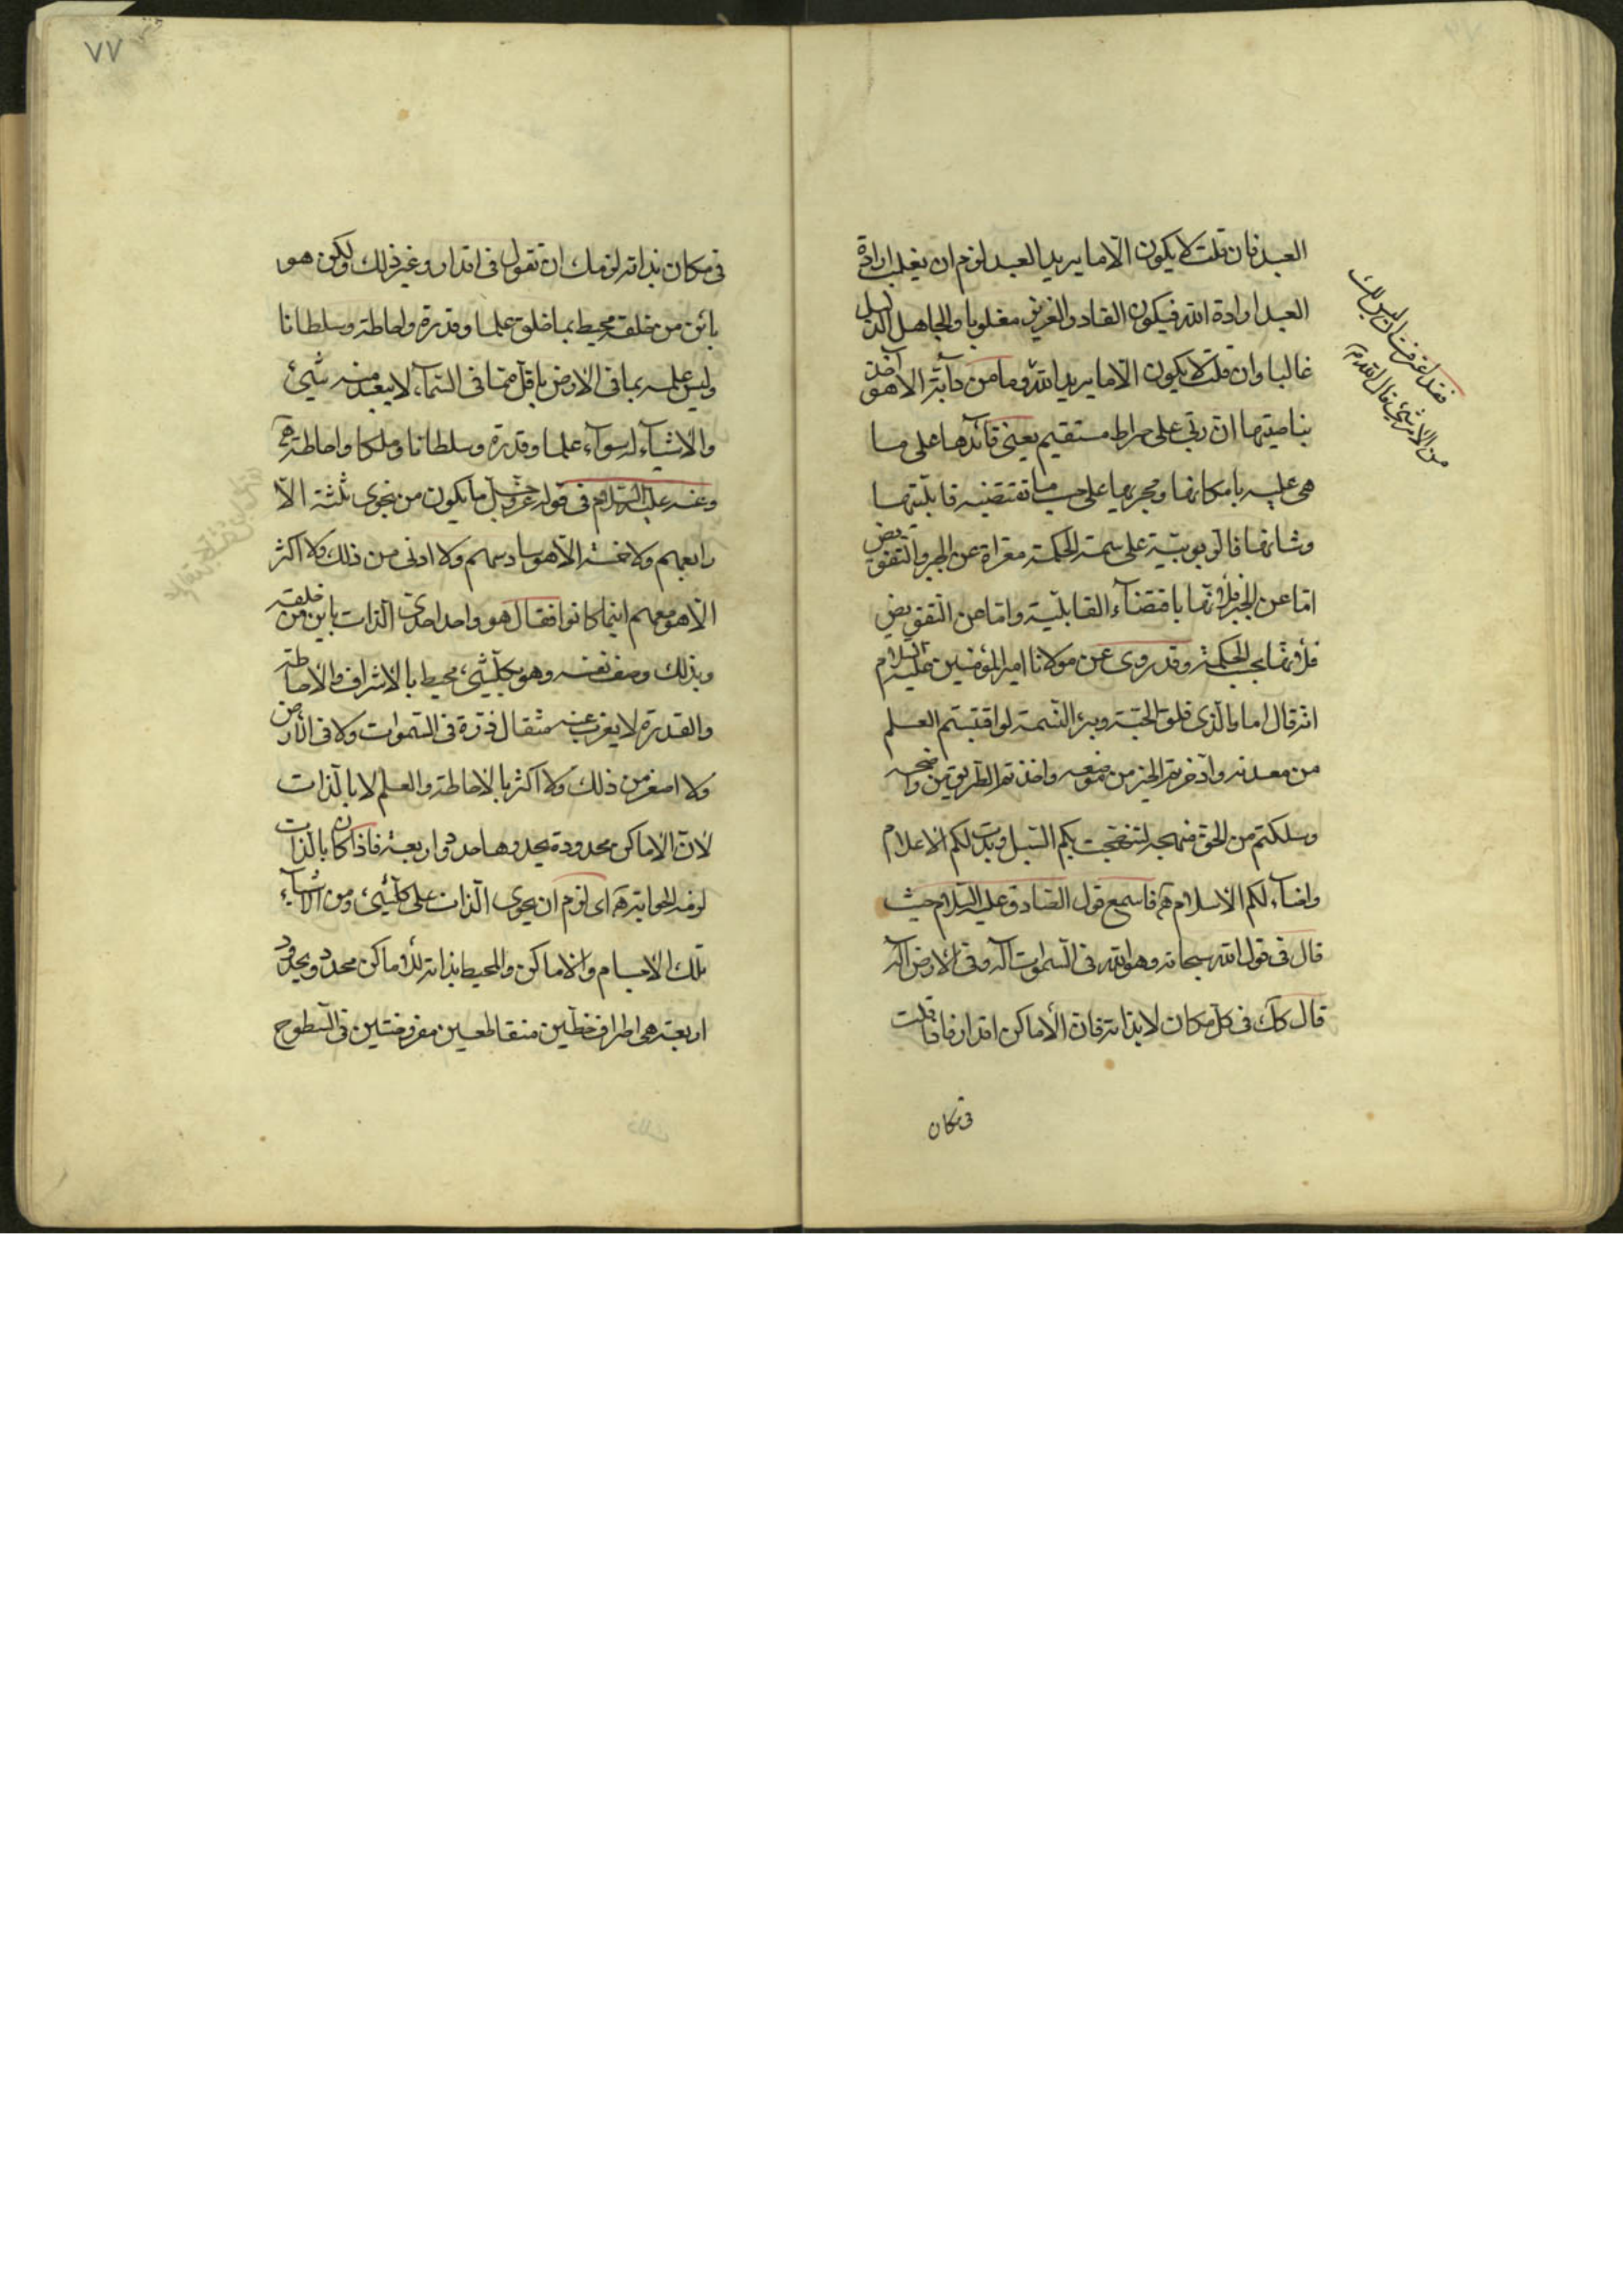 العبد فان قلت لا يكون الّا ما يريد العبد لزم ان يغلب ارادة
العبد ارادة اللّه فيكون القادر العزيز مغلوبا والجاهل الذليل
غالبا وان قلت لا يكون الّا ما يريد اللّه وما من دآبّة الا هو آخذ
بناصيتها انّ ربّي على صراط مستقيم يعني قائدها على ما
هي عليه بامكانها ومجريها على حسب ما تقتضيه قابليّتها
وشانها فالربوبيّة على سمة الحكمة معرّاة عن الجبر والتفويض
امّا عن الجبر فلأنّها باقتضآء القابليّة وامّا عن التفويض
فلأنها بجب الحكمة وقد روى عن مولانا امير المؤمنين عليه السلام
انّه قال اما بالّذي فلق الحبّة وبرء النّسمة لو اقتبستم العلم
من معدنه وادّخرتم الخير من موضعه واخذتم الطريق من واضحه
وسلكتم من الحق منهجه لنهجت بكم السّبل وبدت لكم الاعلام
واضآء لكم الاسلام هـ فاسمع قول الصّادق عليه السّلام حيث
قال في قول اللّه سبحانه وهو اللّه في السّموات آله وفي الارض آله
قال كك في كلّ مكان لا بذاته فان الأماكن اقدار فاذا قلت
في مكان
فقد اعترفت ان ليس لك
من الامر شئ قال اللّه تم
٧٧
في مكان بذاته لزمك ان تقول في اقدار وغير ذلك ولكن هو
بائن من خلقه محيط بما خلق علما وقدرة واحاطة وسلطانا
وليس علمه بما في الارض باقلّ ممّا في السّمآء لا يبعد منه شئ
والاشيآء له سوآء علما وقدرة وسلطانا وملكا واحاطة هـ
وعنه عليه السّلام في قوله عزّ وجلّ ما يكون من نجوى ثلثة الّا
رابعهم ولا خمسة الّا هو سادسهم ولا ادنى من ذلك ولا اكثر
الّا هو معهم اينما كانوا فقال هو واحد احدي الذات باين من خلقه
وبذلك وصف نفسه وهو بكلّ شئ محيط بالاشراف والاحاطة
والقدرة لا يعزب عنه مثقال ذرّة في السّموات ولا في الارض
ولا اصغر من ذلك ولا اكثر بالاحاطة والعلم لا بالذات
لانّ الاماكن محدودة يحدوها حدود اربعة فاذا كان بالذات
لزمه الحواية هـ اي لزم ان يحوي الذات على كلّ شئ ومن الاشيآء
تلك الاجسام والاماكن والمحيط بذاته للأماكن محدد ويحدود
اربعة هي اطراف خطّين متقاطعين مفروضتين في السّطوح